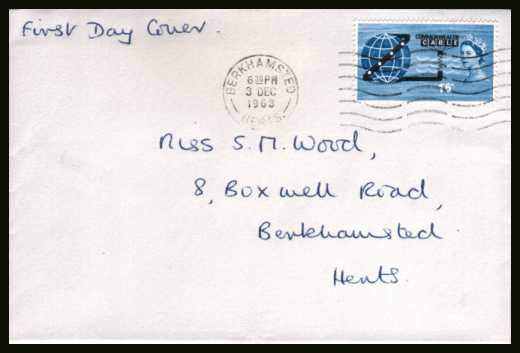 First Day Cover.
COMMONWEALTH
CABLE
BERKHAMSTED
6 PM
3 DEC
1963
HERTS.
Miss S. M. Wood,
8, Boxwell Road,
Berkhamsted.
Herts.